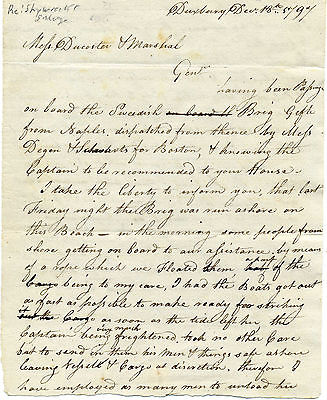 Re: Shipwreck of
Duxbury Decr. 18th 1797
Mess Ducoster & Marshal
Gent
having been Passenger
on board the Sweedish on board th Brig Gefle
from Naples, dispatched from thence by Mess
Degen & for Boston, & knowing the
Captain to be recommended to your House.
I take the liberty to inform you, that last
Friday night the Brig was run ashore on
this Beach — in the morning some people from
shore getting on board to our assistance by means
of a rope which we floated them a part of the
Cargo being to my care, I had the Boats got out
as fast as possible to make ready for striking
out the Cargo as soon as the tide left her the
Captain being very much freightened, took no other Care
but to send on them his Men & things safe ashore
leaving Vessell & Cargo at discretion, therefor I
have employed as many men to unload his